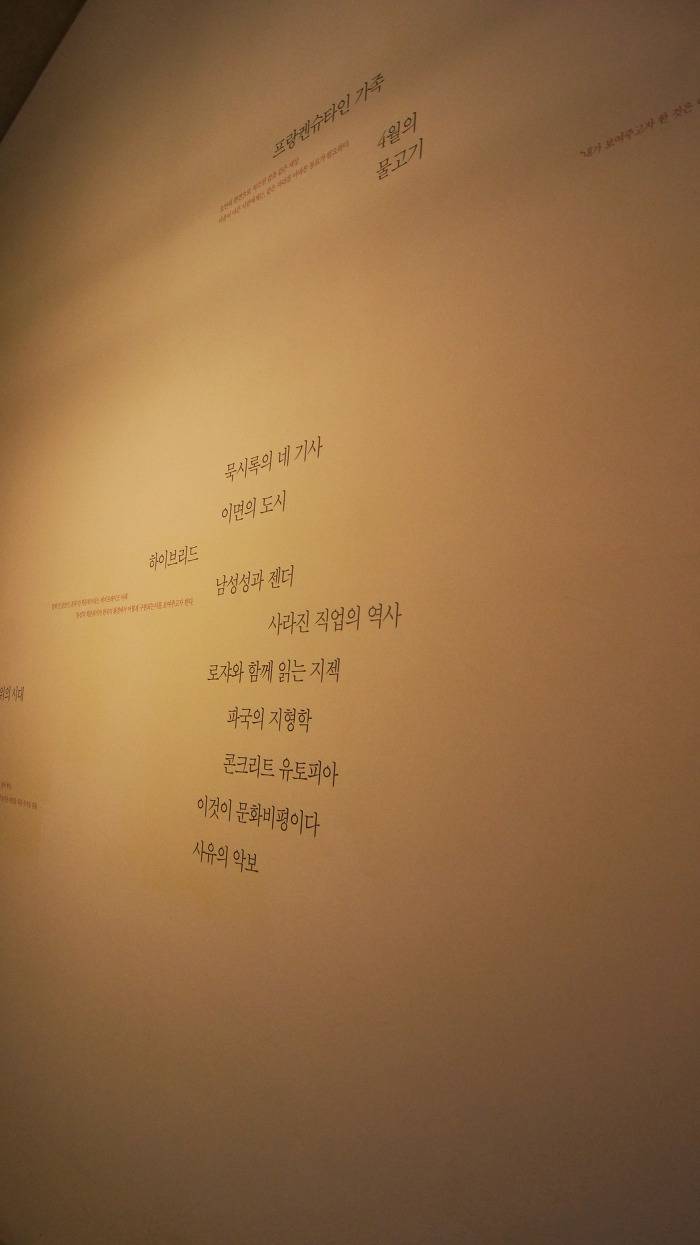 프랑켄슈타인 가족
4월의
물고기
"내가 보여주고자 한 것은
묵시록의 네 기사
이면의 도시
하이브리드
남성성과 젠더
사라진 직업의 역사
로쟈와 함께 읽는 지젝
파국의 지형학
위의 시대
콘크리트 유토피아
이것이 문화비평이다
사유의 악보